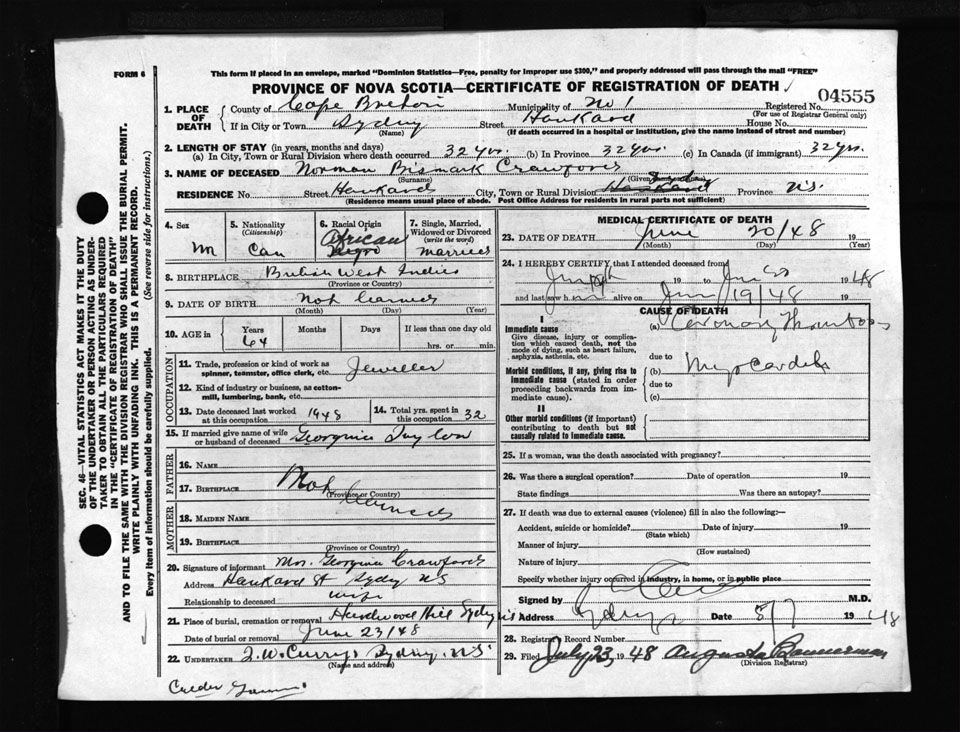 FORM 6
This form if placed in an envelope, marked "Dominion Statistics—Free, penalty for improper use $300," and properly addressed will pass through the mail "FREE"
PROVINCE OF NOVA SCOTIA—CERTIFICATE OF REGISTRATION OF DEATH
04555
1. PLACE OF DEATH
County of Cape Breton Municipality of No 1 Registered No.
(For use of Registrar General only)
If in City or Town Sydney Street Hankard House No.
(Name) (If death occurred in a hospital or institution, give the name instead of street and number)
2. LENGTH OF STAY (in years, months and days)
(a) In City, Town or Rural Division where death occurred 32 yrs. (b) In Province 32 yrs. (c) In Canada (if immigrant) 32 yrs.
3. NAME OF DECEASED Norman Bismark Crawford
(Surname) (Given
RESIDENCE No. Street Hankard City, Town or Rural Division Province N.S.
(Residence means usual place of abode. Post Office Address for residents in rural parts not sufficient)
4. Sex
M
5. Nationality
(Citizenship)
Can
6. Racial Origin
African
Negro
7. Single, Married, Widowed or Divorced
(write the word)
Married
8. BIRTHPLACE British West Indies
(Province or Country)
9. DATE OF BIRTH Not learned
(Month) (Day) (Year)
10. AGE in
Years Months Days If less than one day old
64 hrs. or min.
OCCUPATION
11. Trade, profession or kind of work as spinner, teamster, office clerk, etc. Jeweller
12. Kind of industry or business, as cotton-mill, lumbering, bank, etc.
13. Date deceased last worked at this occupation 1948
14. Total yrs. spent in this occupation 32
15. If married give name of wife or husband of deceased Georgina Taylor
FATHER
16. Name
17. Birthplace Not learned
(Province or Country)
MOTHER
18. Maiden Name
19. Birthplace
(Province or Country)
20. Signature of informant Mrs. Georgina Crawford
Address Hankard St Sydney NS
Relationship to deceased wife
21. Place of burial, cremation or removal Hardwood Hill Sydney
Date of burial or removal June 23/48
22. UNDERTAKER T. W. Curry Sydney, N.S.
(Name and address)
MEDICAL CERTIFICATE OF DEATH
23. DATE OF DEATH June 20/48 19
(Month) (Day) (Year)
24. I HEREBY CERTIFY that I attended deceased from
19 to June 20 1948
and last saw h alive on June 19/48 19
CAUSE OF DEATH
I
Immediate cause
Give disease, injury or complication which caused death, not the mode of dying, such as heart failure, asphyxia, asthenia, etc.
(a) Coronary Thrombosis
due to
Morbid conditions, if any, giving rise to immediate cause (stated in order proceeding backwards from immediate cause).
(b)
due to
(c)
II
Other morbid conditions (if important) contributing to death but not causally related to immediate cause.
25. If a woman, was the death associated with pregnancy?
26. Was there a surgical operation? Date of operation 19
State findings Was there an autopsy?
27. If death was due to external causes (violence) fill in also the following:—
Accident, suicide or homicide? Date of injury 19
(State which)
Manner of injury
(How sustained)
Nature of injury
Specify whether injury occurred in industry, in home, or in public place
Signed by M.D.
Address Sydney Date 5/7 1948
28. Registrar's Record Number
29. Filed July 23, 1948 Augusta Bannerman
(Division Registrar)
SEC. 46—VITAL STATISTICS ACT MAKES IT THE DUTY
OF THE UNDERTAKER OR PERSON ACTING AS UNDER-
TAKER TO OBTAIN ALL THE PARTICULARS REQUIRED
IN THE "CERTIFICATE OF REGISTRATION OF DEATH"
AND TO FILE THE SAME WITH THE DIVISION REGISTRAR WHO SHALL ISSUE THE BURIAL PERMIT.
WRITE PLAINLY WITH UNFADING INK. THIS IS A PERMANENT RECORD.
Every item of information should be carefully supplied. (See reverse side for instructions.)